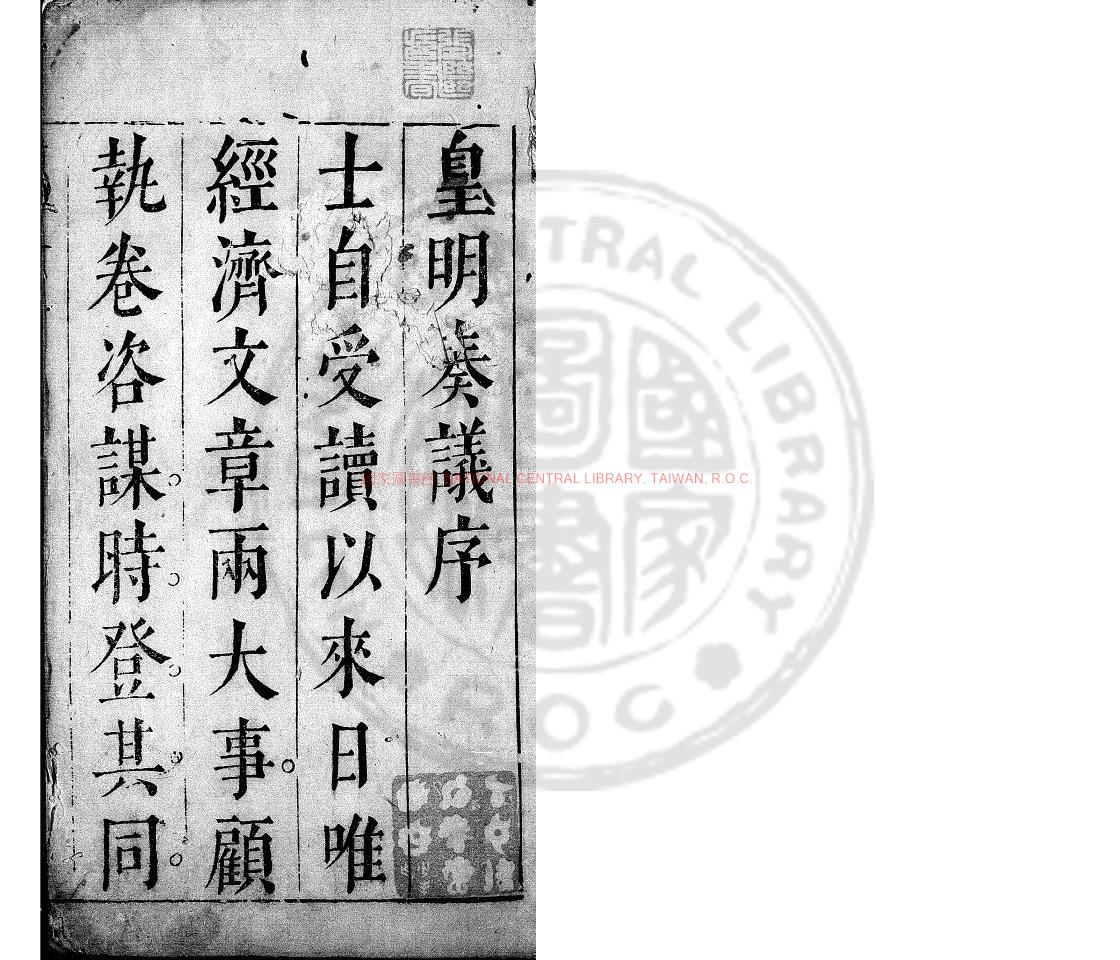 皇明奏議序
士自受讀以來日唯
經濟文章兩大事顧
執卷咨謀時登其同
國家圖書館 NATIONAL CENTRAL LIBRARY, TAIWAN, R.O.C.
CENTRAL LIBRARY
國家圖書
R.O.C